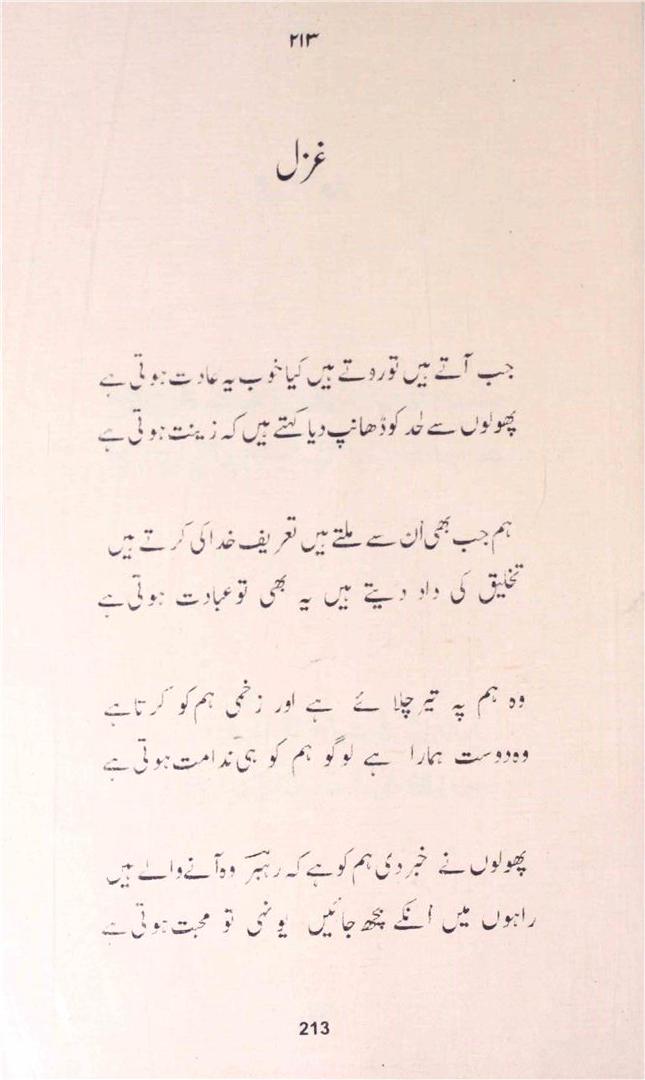 ۲۱۳
غزل
جب آتے ہیں تو روتے ہیں کیا خوب یہ عادت ہوتی ہے
پھولوں سے لحد کو ڈھانپ دیا کہتے ہیں کہ زینت ہوتی ہے
ہم جب بھی اُن سے ملتے ہیں تعریف خدا کی کرتے ہیں
تخلیق کی داد دیتے ہیں یہ بھی تو عبادت ہوتی ہے
وہ ہم پہ تیر چلائے ہے اور زخمی ہم کو کرتا ہے
وہ دوست ہمارا ہے لوگو ہم کو ہی ندامت ہوتی ہے
پھولوں نے خبر دی ہم کو ہے کہ رہبرؔ وہ آنے والے ہیں
راہوں میں انکے بچھ جائیں یونہی تو محبت ہوتی ہے
213